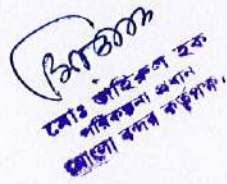 মোঃ জহিরুল হক
পরিকল্পনা প্রধান
মোংলা বন্দর কর্তৃপক্ষ,